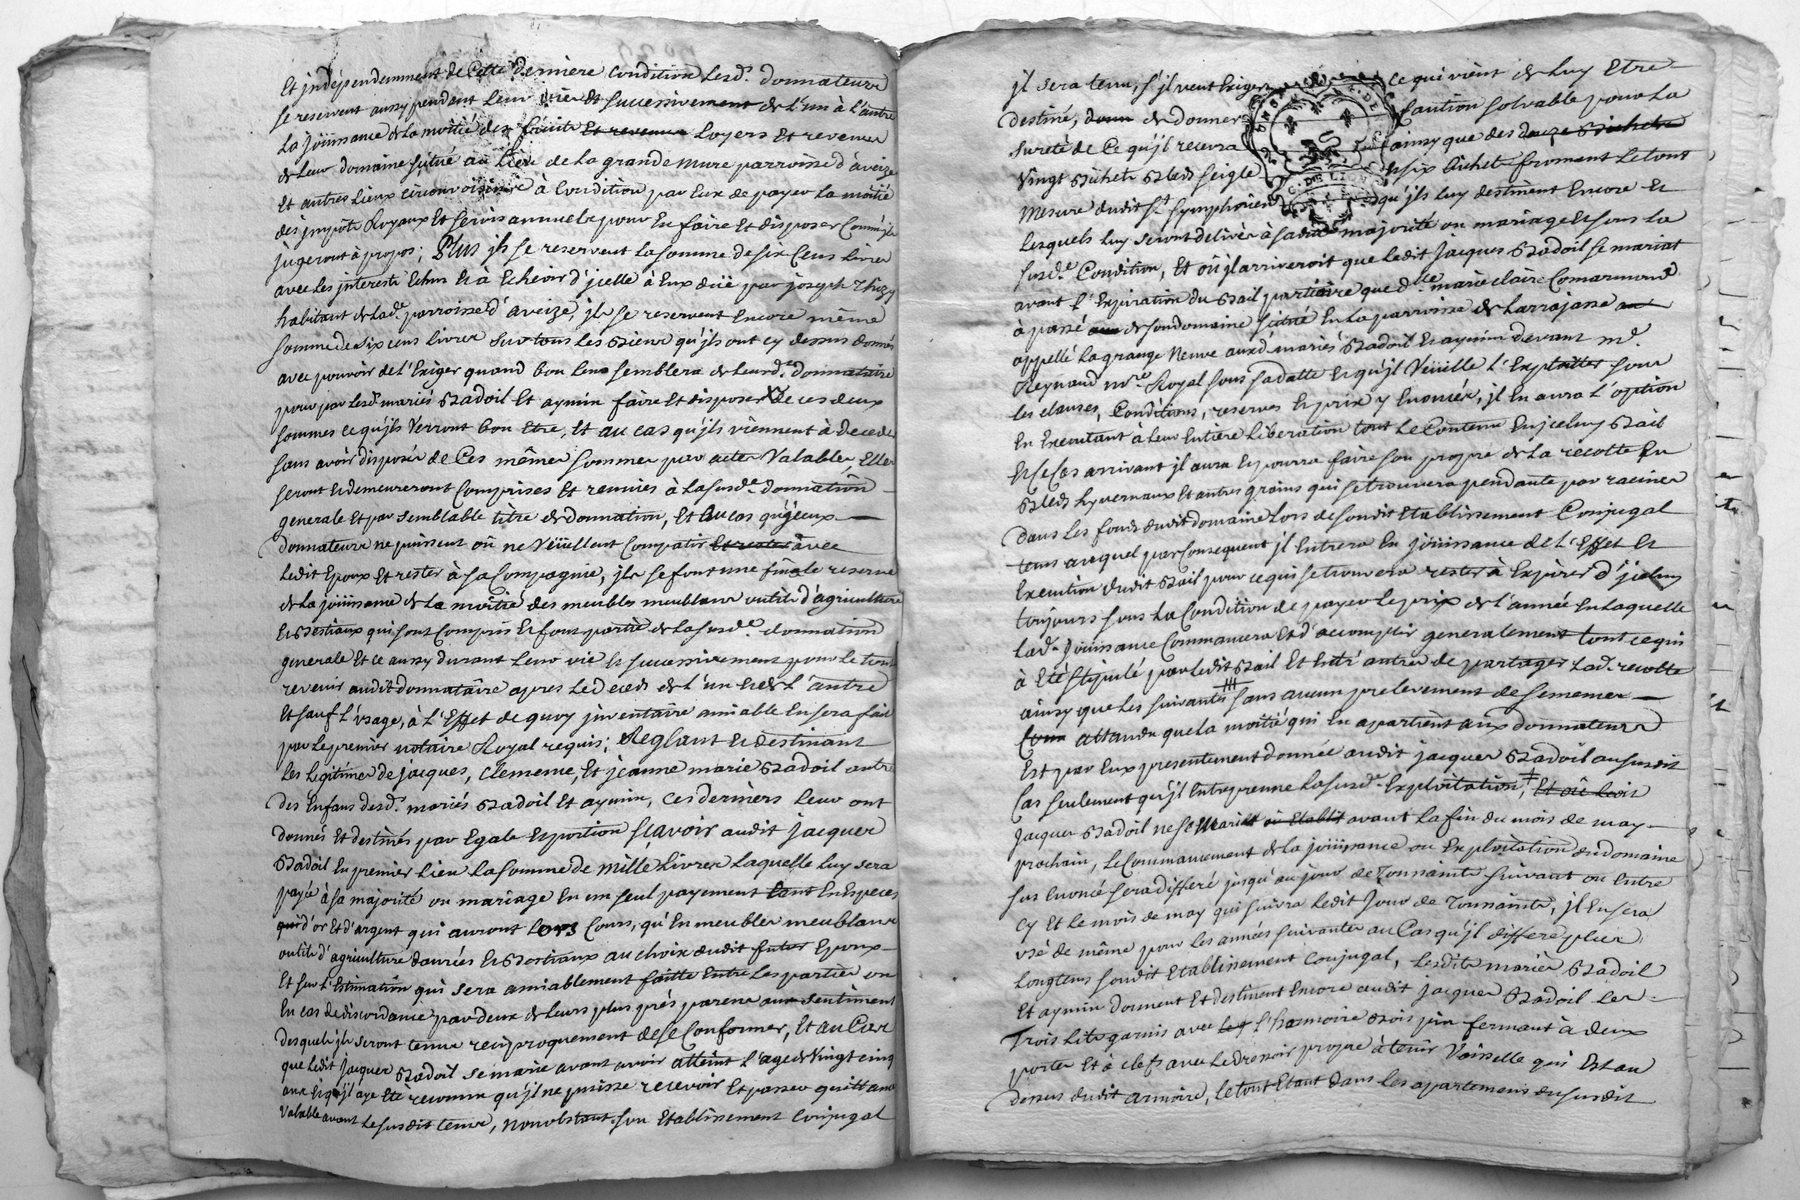 Et jndépendamment de Cette derniere Condition Lesd. donnateurs
se reservent aussy pendant Leur vie Et successivement de L'un à L'autre
La joüissance de La moitié des fruits Et revenus Loyers Et revenus
de Leur domaine situé au Lieu de La grande mure parroisse d'aveize
Et autres Lieux circonvoisins à Condition par Eux de payer La moitié
des jmpôts Royaux Et servis annuels pour En faire Et disposer Comm'jls
jugeront à propos; Plus jls se reservent La somme de six Cens Livres
avec Les jnterests Echus Et à Echeoir d'jcelle à Eux düe par joseph Thizy
habitant de Lad.e parroisse d'aveize, jls se reservent Encore même
somme de six cens Livres sur tous Les Biens qu'jls ont cy dessus donnés
avec pouvoir de L'Exiger quand bon Leur semblera de Leurd.e donnataire
pour par Lesd. mariés Badoil Et aymin faire Et disposer de ces deux
sommes ce qu'jls Verront bon Etre, Et au cas qu'jls viennent à deceder
sans avoir disposé de Ces mêmes sommes par actes Valables, Elles
seront Et demeureront Comprises Et reunies à La susd.e donnation
generale Et par semblable titre de donnation, Et au cas qu'jceux
donnateurs ne puissent où ne Veüillent Compatir Et rester avec
Ledit Epoux Et rester à sa Compagnie, jls se font une finale reserve
de La joüissance de La moitié des meubles meublans outils d'agriculture
Et Bestiaux qui sont Compris Et font partie de La susd.e donnation
generale Et ce aussy durant Leur vie Et successivement pour Le tout
revenir audit donnataire apres Le deceds de L'un Et de L'autre
Et sauf L'Usage, à L'Effet de quoy jnventaire amiable En sera fait
par Le premier notaire Royal requis; Reglant Et destinant
Les Legitimes de jacques, Clemence, Et jeanne marie Badoil autres
des Enfans desd. mariés Badoil Et aymin, Ces derniers Leur ont
donnés Et destinés par Egale Exportion sçavoir audit jacques
Badoil En premier Lieu La somme de Mille Livres Laquelle Luy sera
payé à sa majorité ou mariage En un seul payement tant En Especes
qui d'or Et d'argent qui auront Lors Cours, qu'En meubles meublans
outils d'agriculture danrées Et Bestiaux au choix dudit futur Epoux
Et sur L'Estimation qui sera amiablement faitte Entre Les parties ou
En cas de discordance par deux de Leurs plus prés parens aux sentiment
desquels jls seront tenus reciproquement de se Conformer, Et au Cas
que Ledit jacques Badoil se marie avant avoir atteint L'age de Vingt cinq
ans Et qu'jl aye Eté reconnu qu'jl ne puisse recevoir Et passer quittance
Valable avant Le susdit tems, nonobstant son Etablissement Conjugal
jl sera tenu, s'jl veut Exiger ce qui vient de Luy Etre
destiné, de donner Caution solvable pour La
sureté de Ce qu'jl recevra ainsy que des douze Bichets
Vingt Bichets Bled seigle six Bichets froment Le tout
Mesure dudit St. symphorien qu'jls Luy destinent Encore Et
Lesquels Luy seront delivrés à sad. majorité ou mariage Et sous La
susd.e Condition, Et où jl arriveroit que Ledit jacques Badoil se mariat
avant L'Expiration du Bail partiaire que d.lle marie claire Comarmond
à passé de son domaine situé En La parroisse de Larrajasse
appellé La grange Neuve auxd. mariés Badoil Et aymin devant m.e
Reynaud no.re Royal sous sa datte Et qu'jl Veüille L'Exploiter sous
Les clauses, Conditions, reserves Et prix y Enoncés, jl En aura L'option
En Executant à Leur Entiere Liberation tout Le Contenu En jceluy Bail
Et Ce Cas arrivant jl aura Et pourra faire son propre de La recolte En
Bleds hyvernaux Et autres grains qui se trouvera pendante par racines
dans Les fonds dudit domaine Lors de son dit Etablissement Conjugal
tems auquel par Consequent jl Entrera En joüissance de L'Effet Et
Execution dudit Bail pour ce qui se trouvera rester à Expirer d'jceluy
toujours sous La Condition de payer Le prix de L'année En Laquelle
Lad. joüissance Commancera Et d'accomplir generalement tout ce qui
à Eté stipulé par Ledit Bail Et Entr'autres de partager Lad. recolte
ainsy que Les suivantes sans aucun prelevement de semences
attendu que La moitié qui En apartient aux donnateurs
Est par Eux presentement donnée audit jacques Badoil au susdit
Cas seulement qu'jl Entreprenne La susd. Exploitation, Et où Ledit
jacques Badoil ne se Mariat où Etablit avant La fin du mois de may
prochain, Le Commancement de La joüissance ou Exploitation du domaine
sus Enoncé sera differé jusqu'au jour de Toussaints suivant ou Entre
Cy Et Le mois de may qui suivra Ledit jour de Toussaints, jl En sera
usé de même pour Les années suivantes au Cas qu'jl differe plus
Longtems son dit Etablissement Conjugal, Lesdits mariés Badoil
Et aymin donnent Et destinent Encore audit jacques Badoil Les
Trois Lits garnis avec L'harmoire Bois pin fermant à deux
portes Et à clefs avec Le dressoir propre à tenir Vaisselle qui Est au
dessus dudit armoire, Le tout Etant dans Les apartemens du susdit